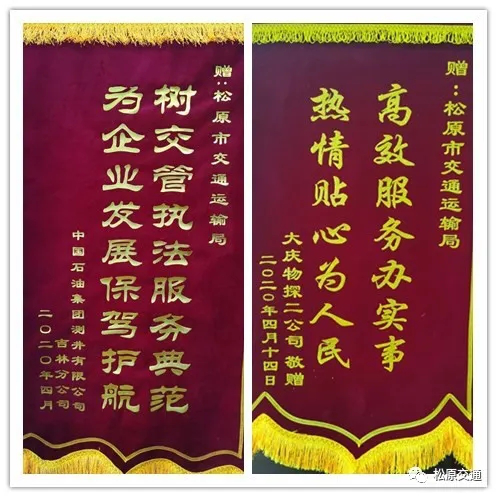 赠：松原市交通运输局
树交管执法服务典范
为企业发展保驾护航
中国石油集团测井有限公司
吉林分公司
二〇二〇年四月
赠：松原市交通运输局
高效服务办实事
热情贴心为人民
大庆物探二公司 敬赠
二〇二〇年四月十四日
松原交通